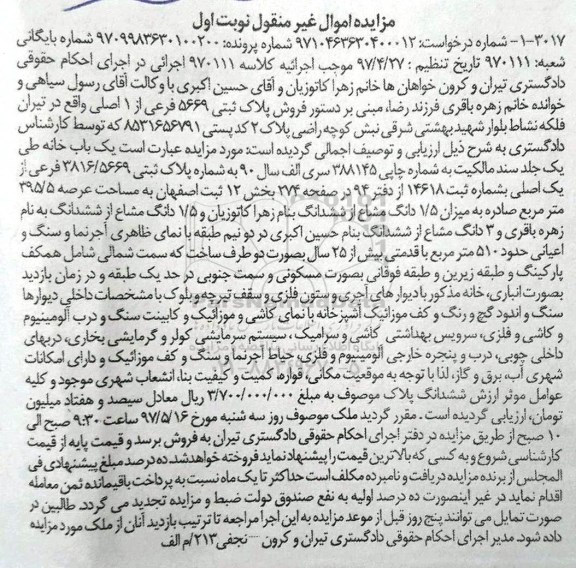 مزایده اموال غیر منقول نوبت اول
۱-۳۰۱۷- شماره درخواست: ۹۷۱۰۴۶۳۶۳۰۴۰۰۰۱۲ شماره پرونده: ۹۷۰۹۹۸۳۶۳۰۱۰۰۲۰۰ شماره بایگانی
شعبه: ۹۷۰۱۱۱ تاریخ تنظیم: ۹۷/۴/۲۷ موجب اجرائیه کلاسه ۹۷۰۱۱۱ اجرائی در اجرای احکام حقوقی
دادگستری تیران و کرون خواهان ها خانم زهرا کاتوزیان و آقای حسین اکبری با وکالت آقای رسول سیاهی و
خوانده خانم زهره باقری فرزند رضا، مبنی بر دستور فروش پلاک ثبتی ۵۶۶۹ فرعی از ۱ اصلی واقع در تیران
فلکه نشاط بلوار شهید بهشتی شرقی نبش کوچه راضی پلاک ۲ کد پستی ۸۵۳۱۶۵۶۷۹۱ که توسط کارشناس
دادگستری به شرح ذیل ارزیابی و توصیف اجمالی گردیده است: مورد مزایده عبارت است یک باب خانه طی
یک جلد سند مالکیت به شماره چاپی ۳۸۸۱۴۵ سری الف سال ۹۰ به شماره پلاک ثبتی ۳۸۱۶/۵۶۶۹ فرعی از
یک اصلی بشماره ثبت ۱۴۶۱۸ از دفتر ۹۴ در صفحه ۲۷۴ بخش ۱۲ ثبت اصفهان به مساحت عرصه ۳۹۵/۵
متر مربع صادره به میزان ۱/۵ دانگ مشاع از ششدانگ بنام زهرا کاتوزیان و ۱/۵ دانگ مشاع از ششدانگ به نام
زهره باقری و ۳ دانگ مشاع از ششدانگ بنام حسین اکبری در دو نیم طبقه با نمای ظاهری آجرنما و سنگ و
اعیانی حدود ۵۱۰ متر مربع با قدمتی بیش از ۲۵ سال بصورت دو طرف ساخت که سمت شمالی شامل همکف
پارکینگ و طبقه زیرین و طبقه فوقانی بصورت مسکونی و سمت جنوبی در حد یک طبقه و در زمان بازدید
بصورت انباری، خانه مذکور با دیوار های آجری و ستون فلزی و سقف تیرچه و بلوک با مشخصات داخلی دیوارها
سنگ و اندود گچ و رنگ و کف موزائیک آشپزخانه با نمای کاشی و موزائیک و کابینت سنگ و درب آلومینیوم
و کاشی و فلزی، سرویس بهداشتی کاشی و سرامیک، سیستم سرمایشی کولر و گرمایشی بخاری، دربهای
داخلی چوبی، درب و پنجره خارجی آلومینیوم و فلزی، حیاط آجرنما و سنگ و کف موزائیک و دارای امکانات
شهری آب، برق و گاز، لذا با توجه به موقعیت مکانی، قواره کمیت و کیفیت بنا، انشعاب شهری موجود و کلیه
عوامل موثر ارزش ششدانگ پلاک موصوف به مبلغ ۳/۷۰۰/۰۰۰/۰۰۰ ریال معادل سیصد و هفتاد میلیون
تومان، ارزیابی گردیده است. مقرر گردید ملک موصوف روز سه شنبه مورخ ۹۷/۵/۱۶ ساعت ۹:۳۰ صبح الی
۱۰ صبح از طریق مزایده در دفتر اجرای احکام حقوقی دادگستری تیران به فروش برسد و قیمت پایه از قیمت
کارشناسی شروع و به کسی که بالاترین قیمت را پیشنهاد نماید فروخته خواهد شد. ده درصد مبلغ پیشنهادی فی
المجلس از برنده مزایده دریافت و نامبرده مکلف است حداکثر تا یک ماه نسبت به پرداخت باقیمانده ثمن معامله
اقدام نماید در غیر اینصورت ده درصد اولیه به نفع صندوق دولت ضبط و مزایده تجدید می گردد. طالبین در
صورت تمایل می توانند پنج روز قبل از موعد مزایده به این اجرا مراجعه تا ترتیب بازدید آنان از ملک مورد مزایده
داده شود. مدیر اجرای احکام حقوقی دادگستری تیران و کرون ---- نجفی ۲۱۳/م الف